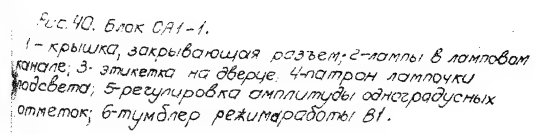 Рис. 40. Блок СА1-1.
1 - крышка, закрывающая разъем; 2-лампы в ламповом
канале; 3- этикетка на дверце. 4-патрон лампочки
подсвета; 5-регулировка амплитуды одноградусных
отметок; 6-тумблер режима работы В1.